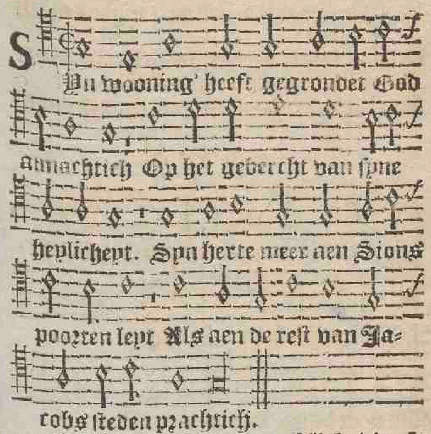 SYn wooning' heeft gegrondet God
almachtich Op het gebercht van syne
heylicheyt. Syn herte meer aen Sions
poorten leyt Als aen de rest van Ja-
cobs steden prachtich.